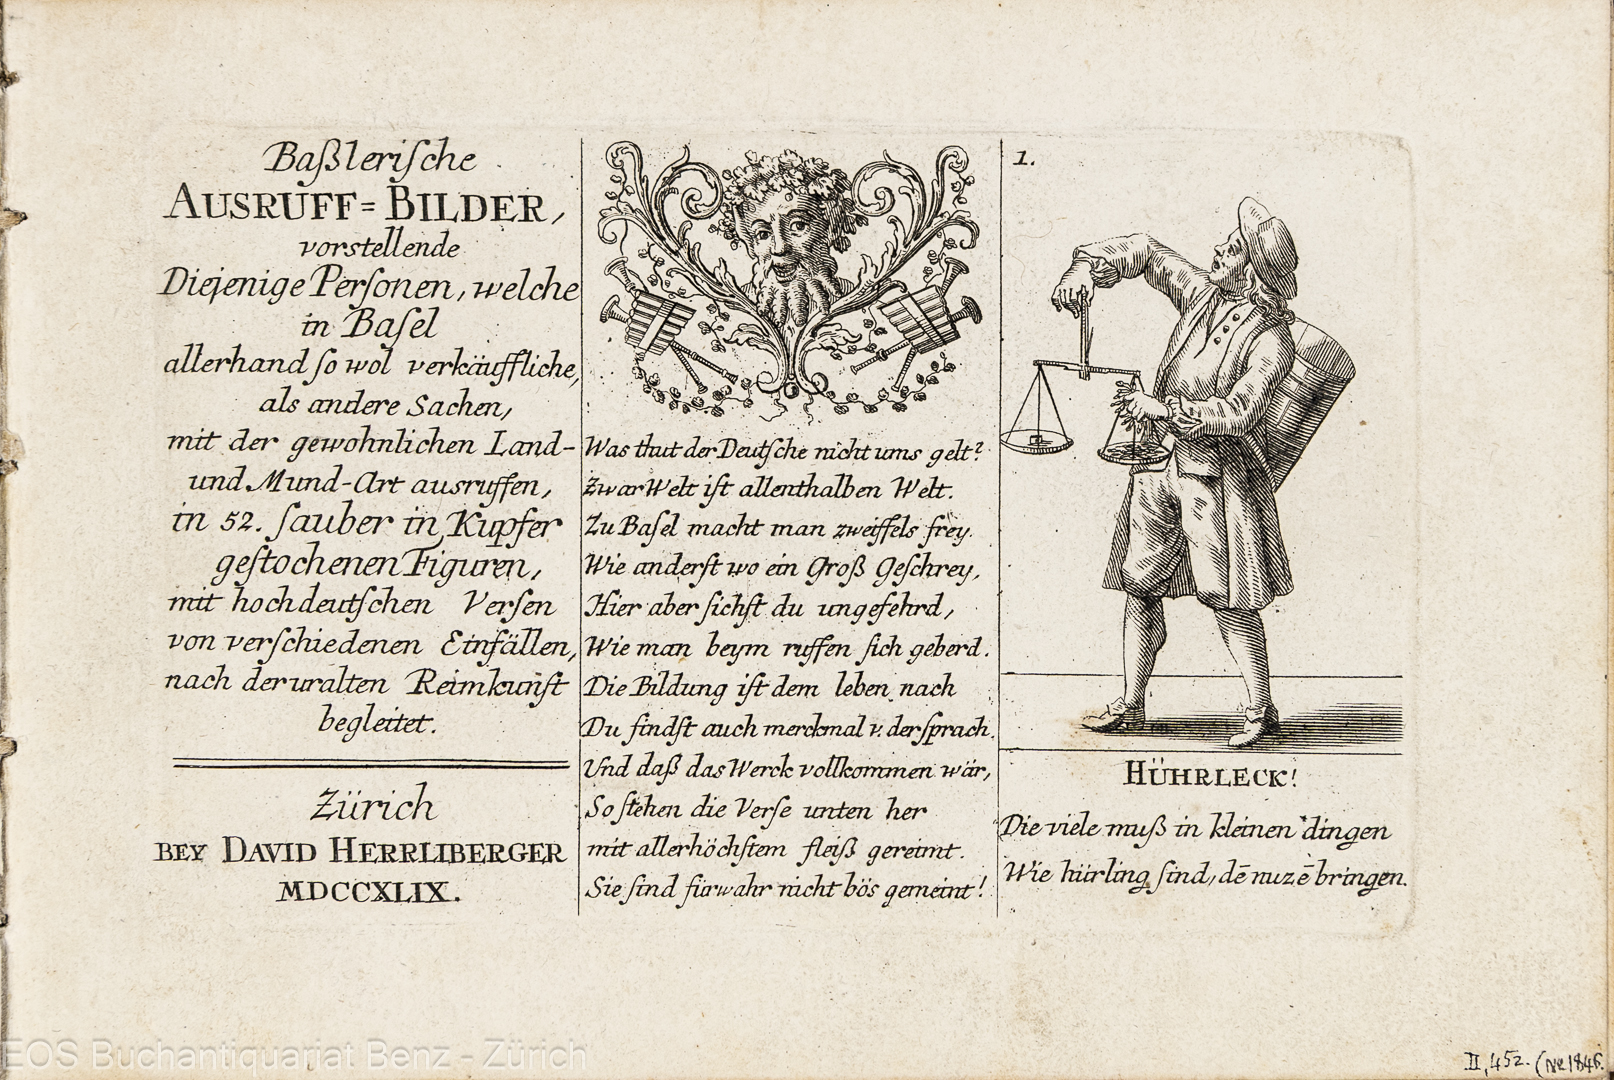 Baßleriſche
AUSRUFF=BILDER,
vorstellende
Diejenige Perſonen, welche
in Baſel
allerhand ſo wol verkäuffliche,
als andere Sachen,
mit der gewohnlichen Land-
und Mund-Art ausruffen,
in 52. ſauber in Kupfer
geſtochenen Figuren,
mit hochdeutſchen Verſen
von verſchiedenen Einfällen,
nach der uralten Reimkunſt
begleitet.
Zürich
BEY DAVID HERRLIBERGER
MDCCXLIX.
Was thut der Deutſche nicht ums gelt?
Zwar Welt iſt allenthalben Welt.
Zu Baſel macht man zweiffels frey.
Wie anderſt wo ein Groß Geſchrey,
Hier aber ſichſt du ungefehrd,
Wie man beym ruffen ſich geberd.
Die Bildung iſt dem leben nach
Du findſt auch merckmal v. der ſprach.
Und daß das Werck vollkommen wär,
So ſtehen die Verſe unten her
mit allerhöchſtem fleiß gereimt.
Sie ſind fürwahr nicht bös gemeint!
1.
HÜHRLECK!
Die viele muß in kleinen dingen
Wie hürling ſind, dē nuz ē bringen.
EOS Buchantiquariat Benz - Zürich
II, 452. (Nr 1846.